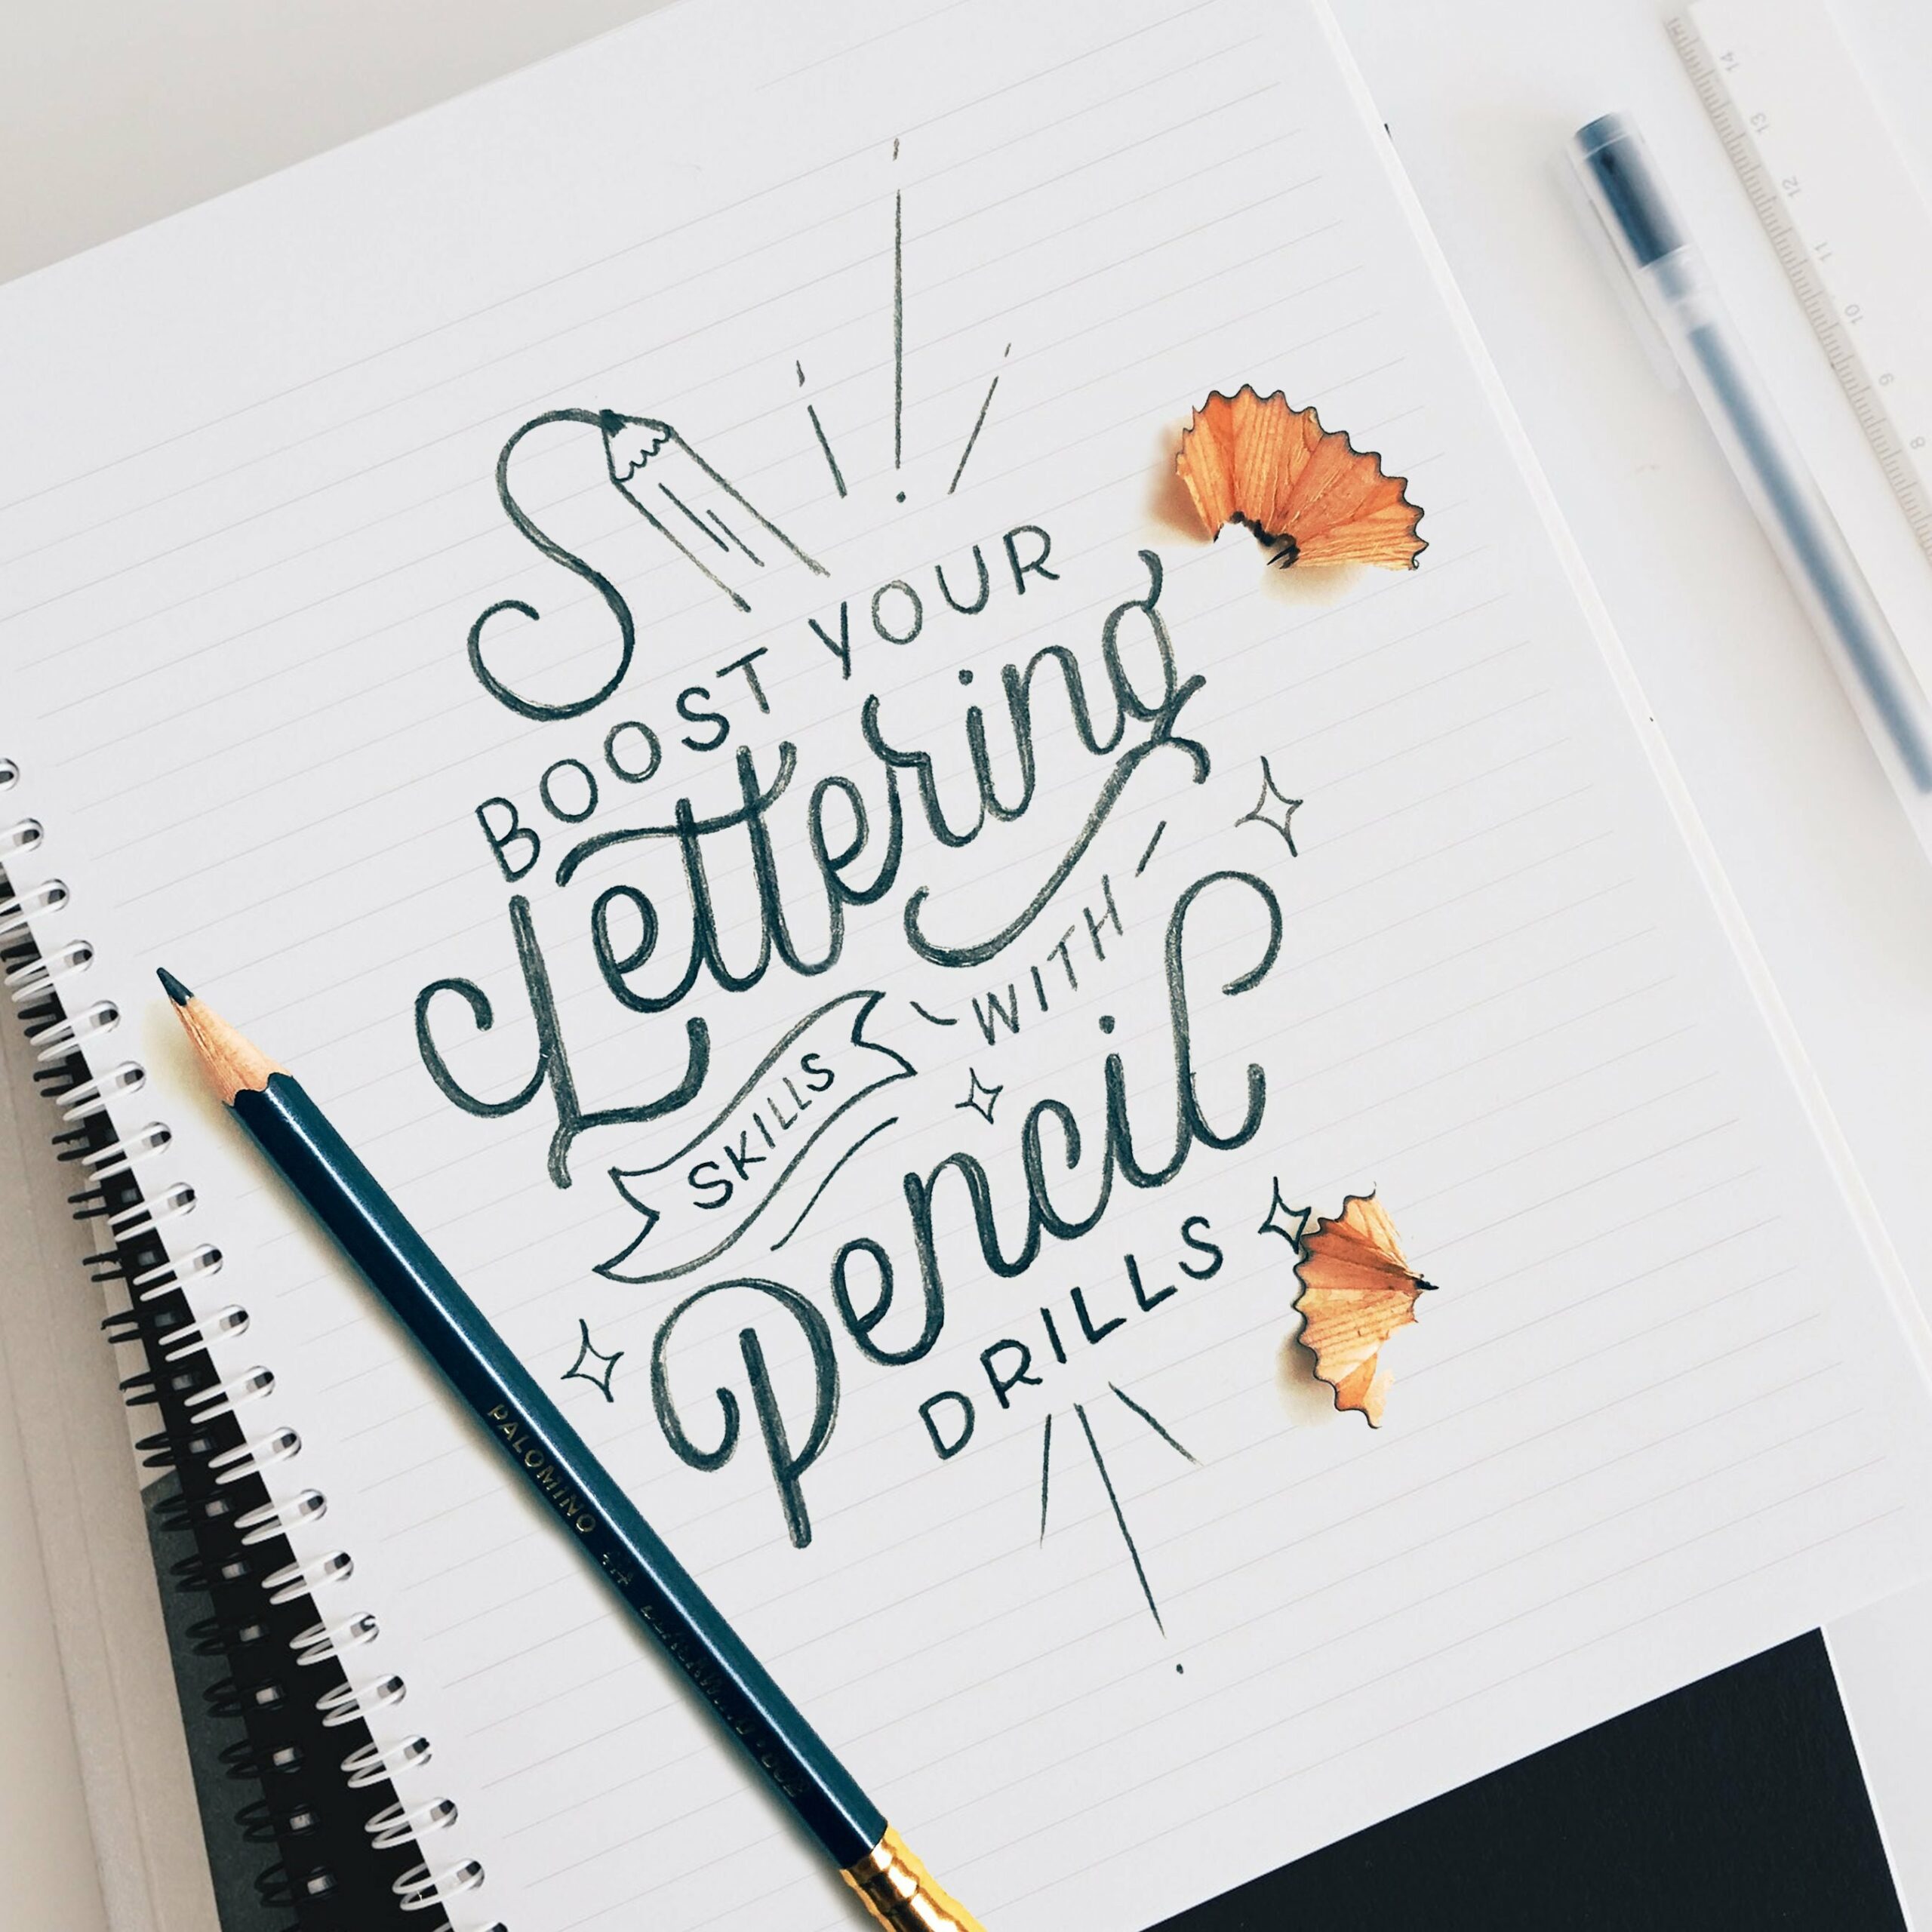 BOOST YOUR
Lettering
SKILLS
WITH
Pencil
DRILLS
PALOMINO
14
13
12
11
10
9
8